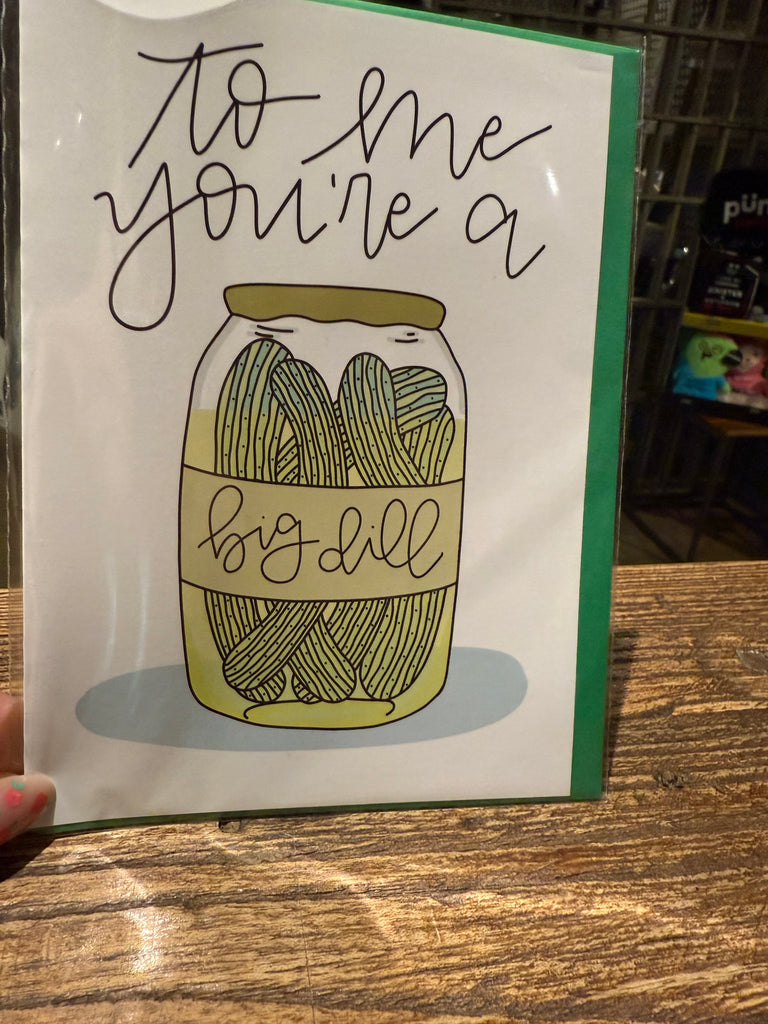 to me
you're a
big dill
pün